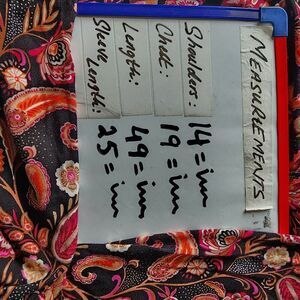 MEASUREMENTS
Shoulders: 14=inn
Chest: 19=inn
Length: 49=inn
Sleeve Length: 25=inn